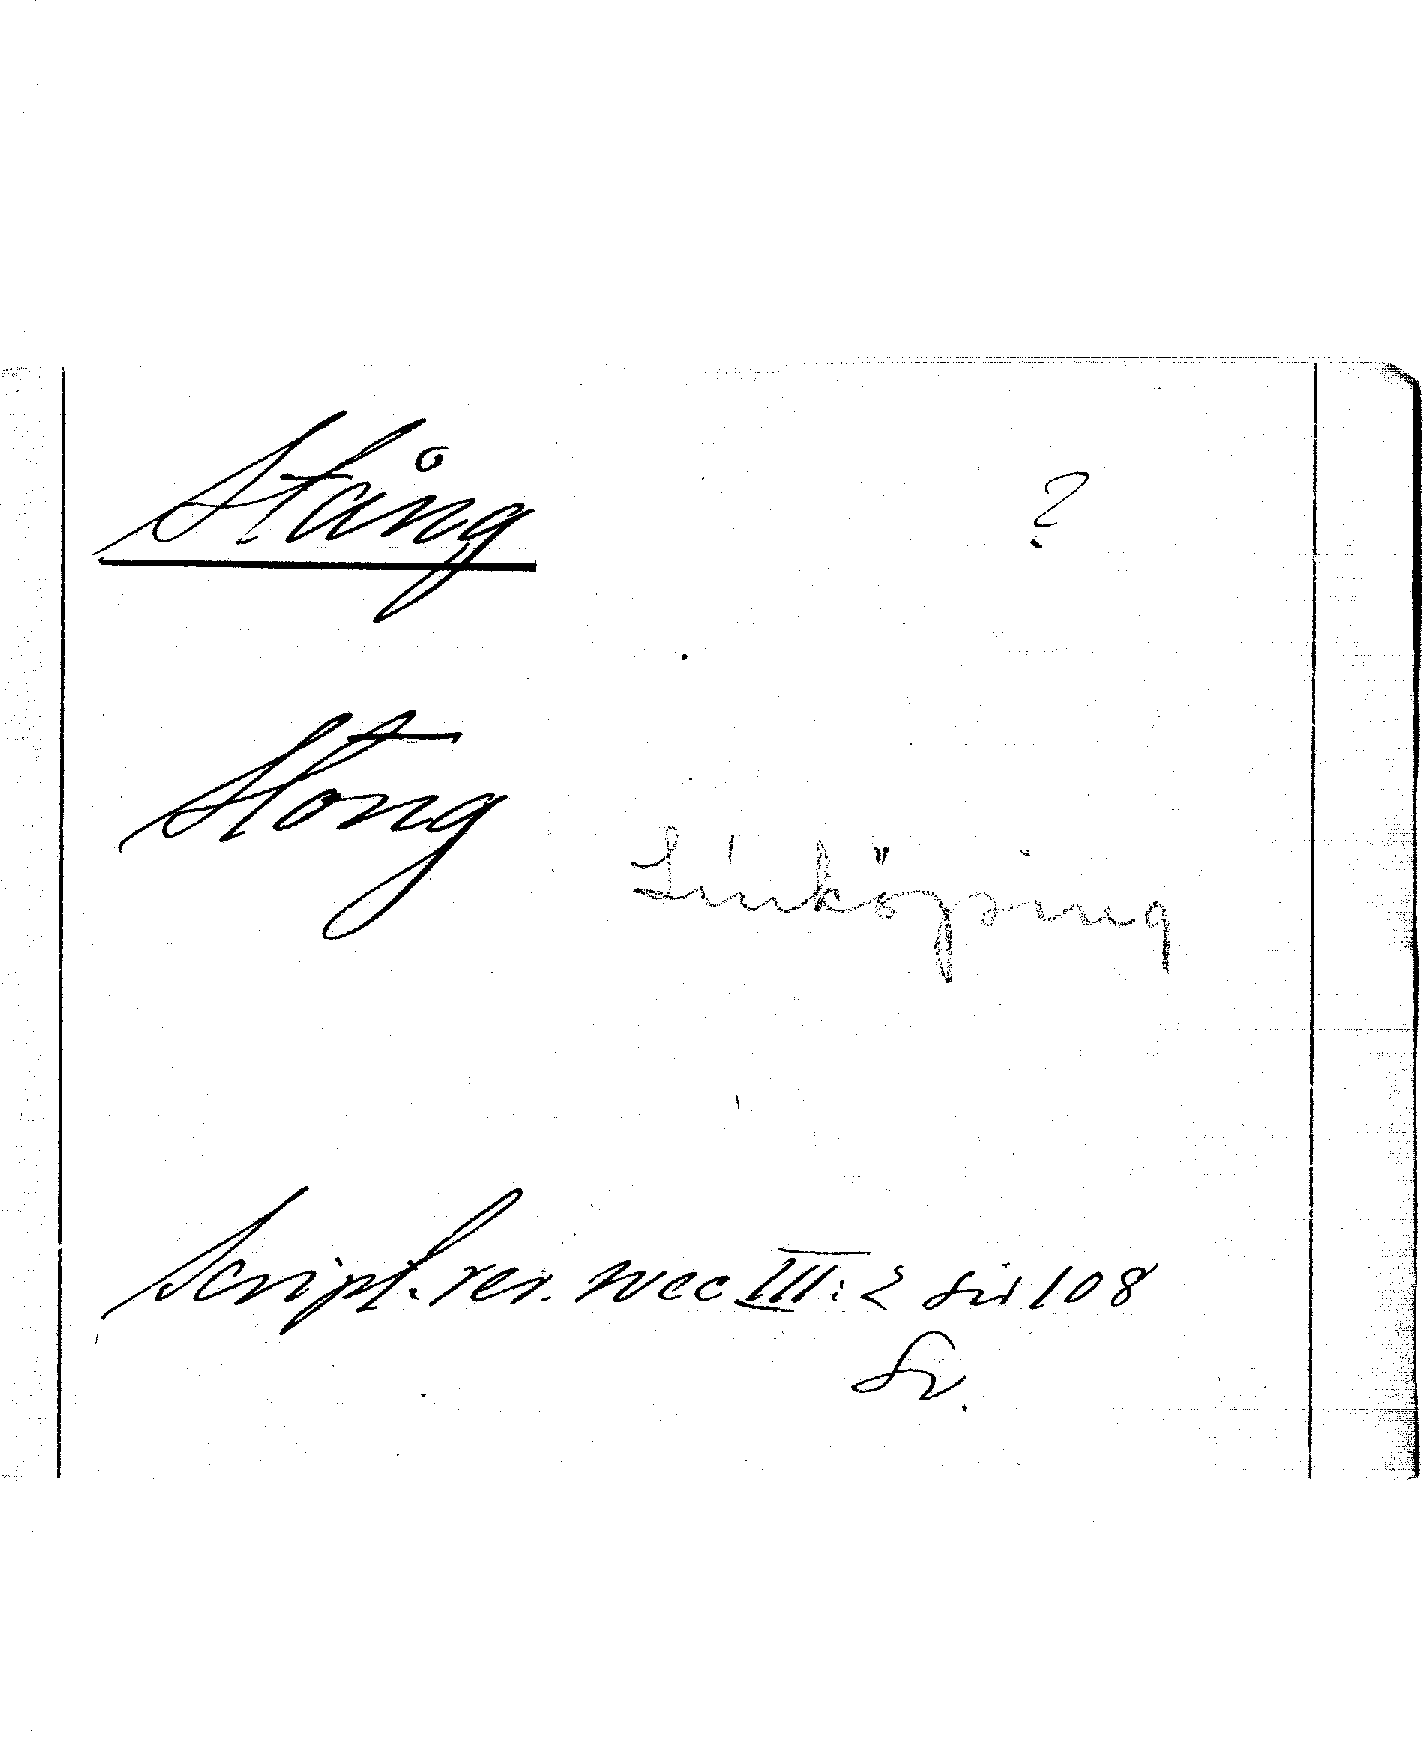 Stång ?
Stong
Linköping
Script. rer. svec III: 2 sid 108
Sv.